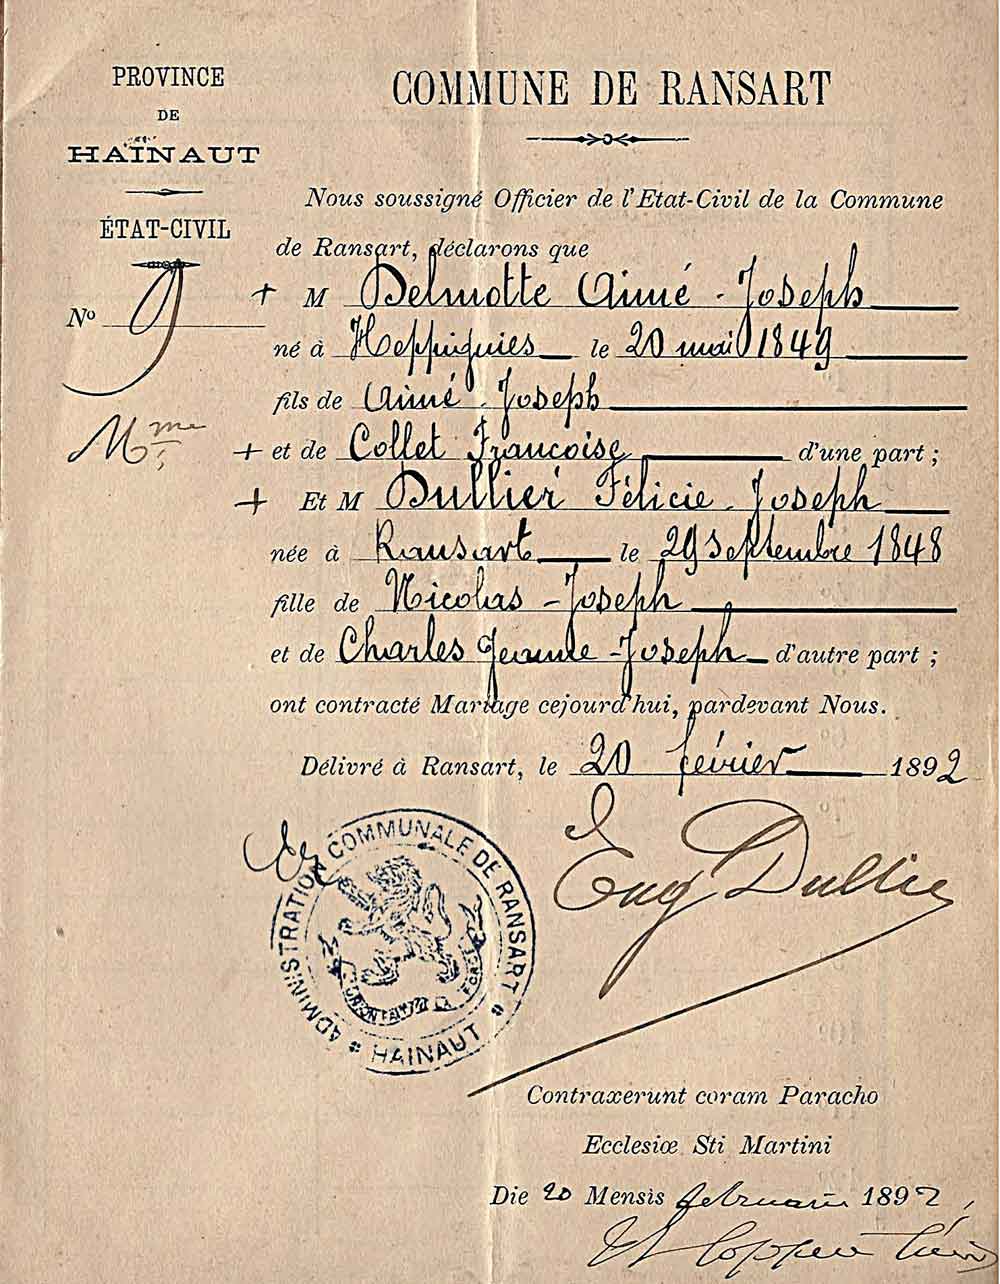 PROVINCE
DE
HAINAUT
ÉTAT-CIVIL
Nº 9
Mme
COMMUNE DE RANSART
Nous soussigné Officier de l'Etat-Civil de la Commune
de Ransart, déclarons que
+ M Delmotte Aimé - Joseph
né à Heppignies le 20 mai 1849
fils de Aimé - Joseph
+ et de Collet Françoise d'une part ;
+ Et M Dullier Félicie - Joseph
née à Ransart le 29 septembre 1848
fille de Nicolas - Joseph
et de Charles Jeanne - Joseph d'autre part ;
ont contracté Mariage cejourd'hui, pardevant Nous.
Délivré à Ransart, le 20 février 1892
Eug Dullier
ADMINISTRATION COMMUNALE DE RANSART
* HAINAUT *
L'UNION FAIT LA FORCE
Contraxerunt coram Paracho
Ecclesiæ Sti Martini
Die 20 Mensis februarii 1892